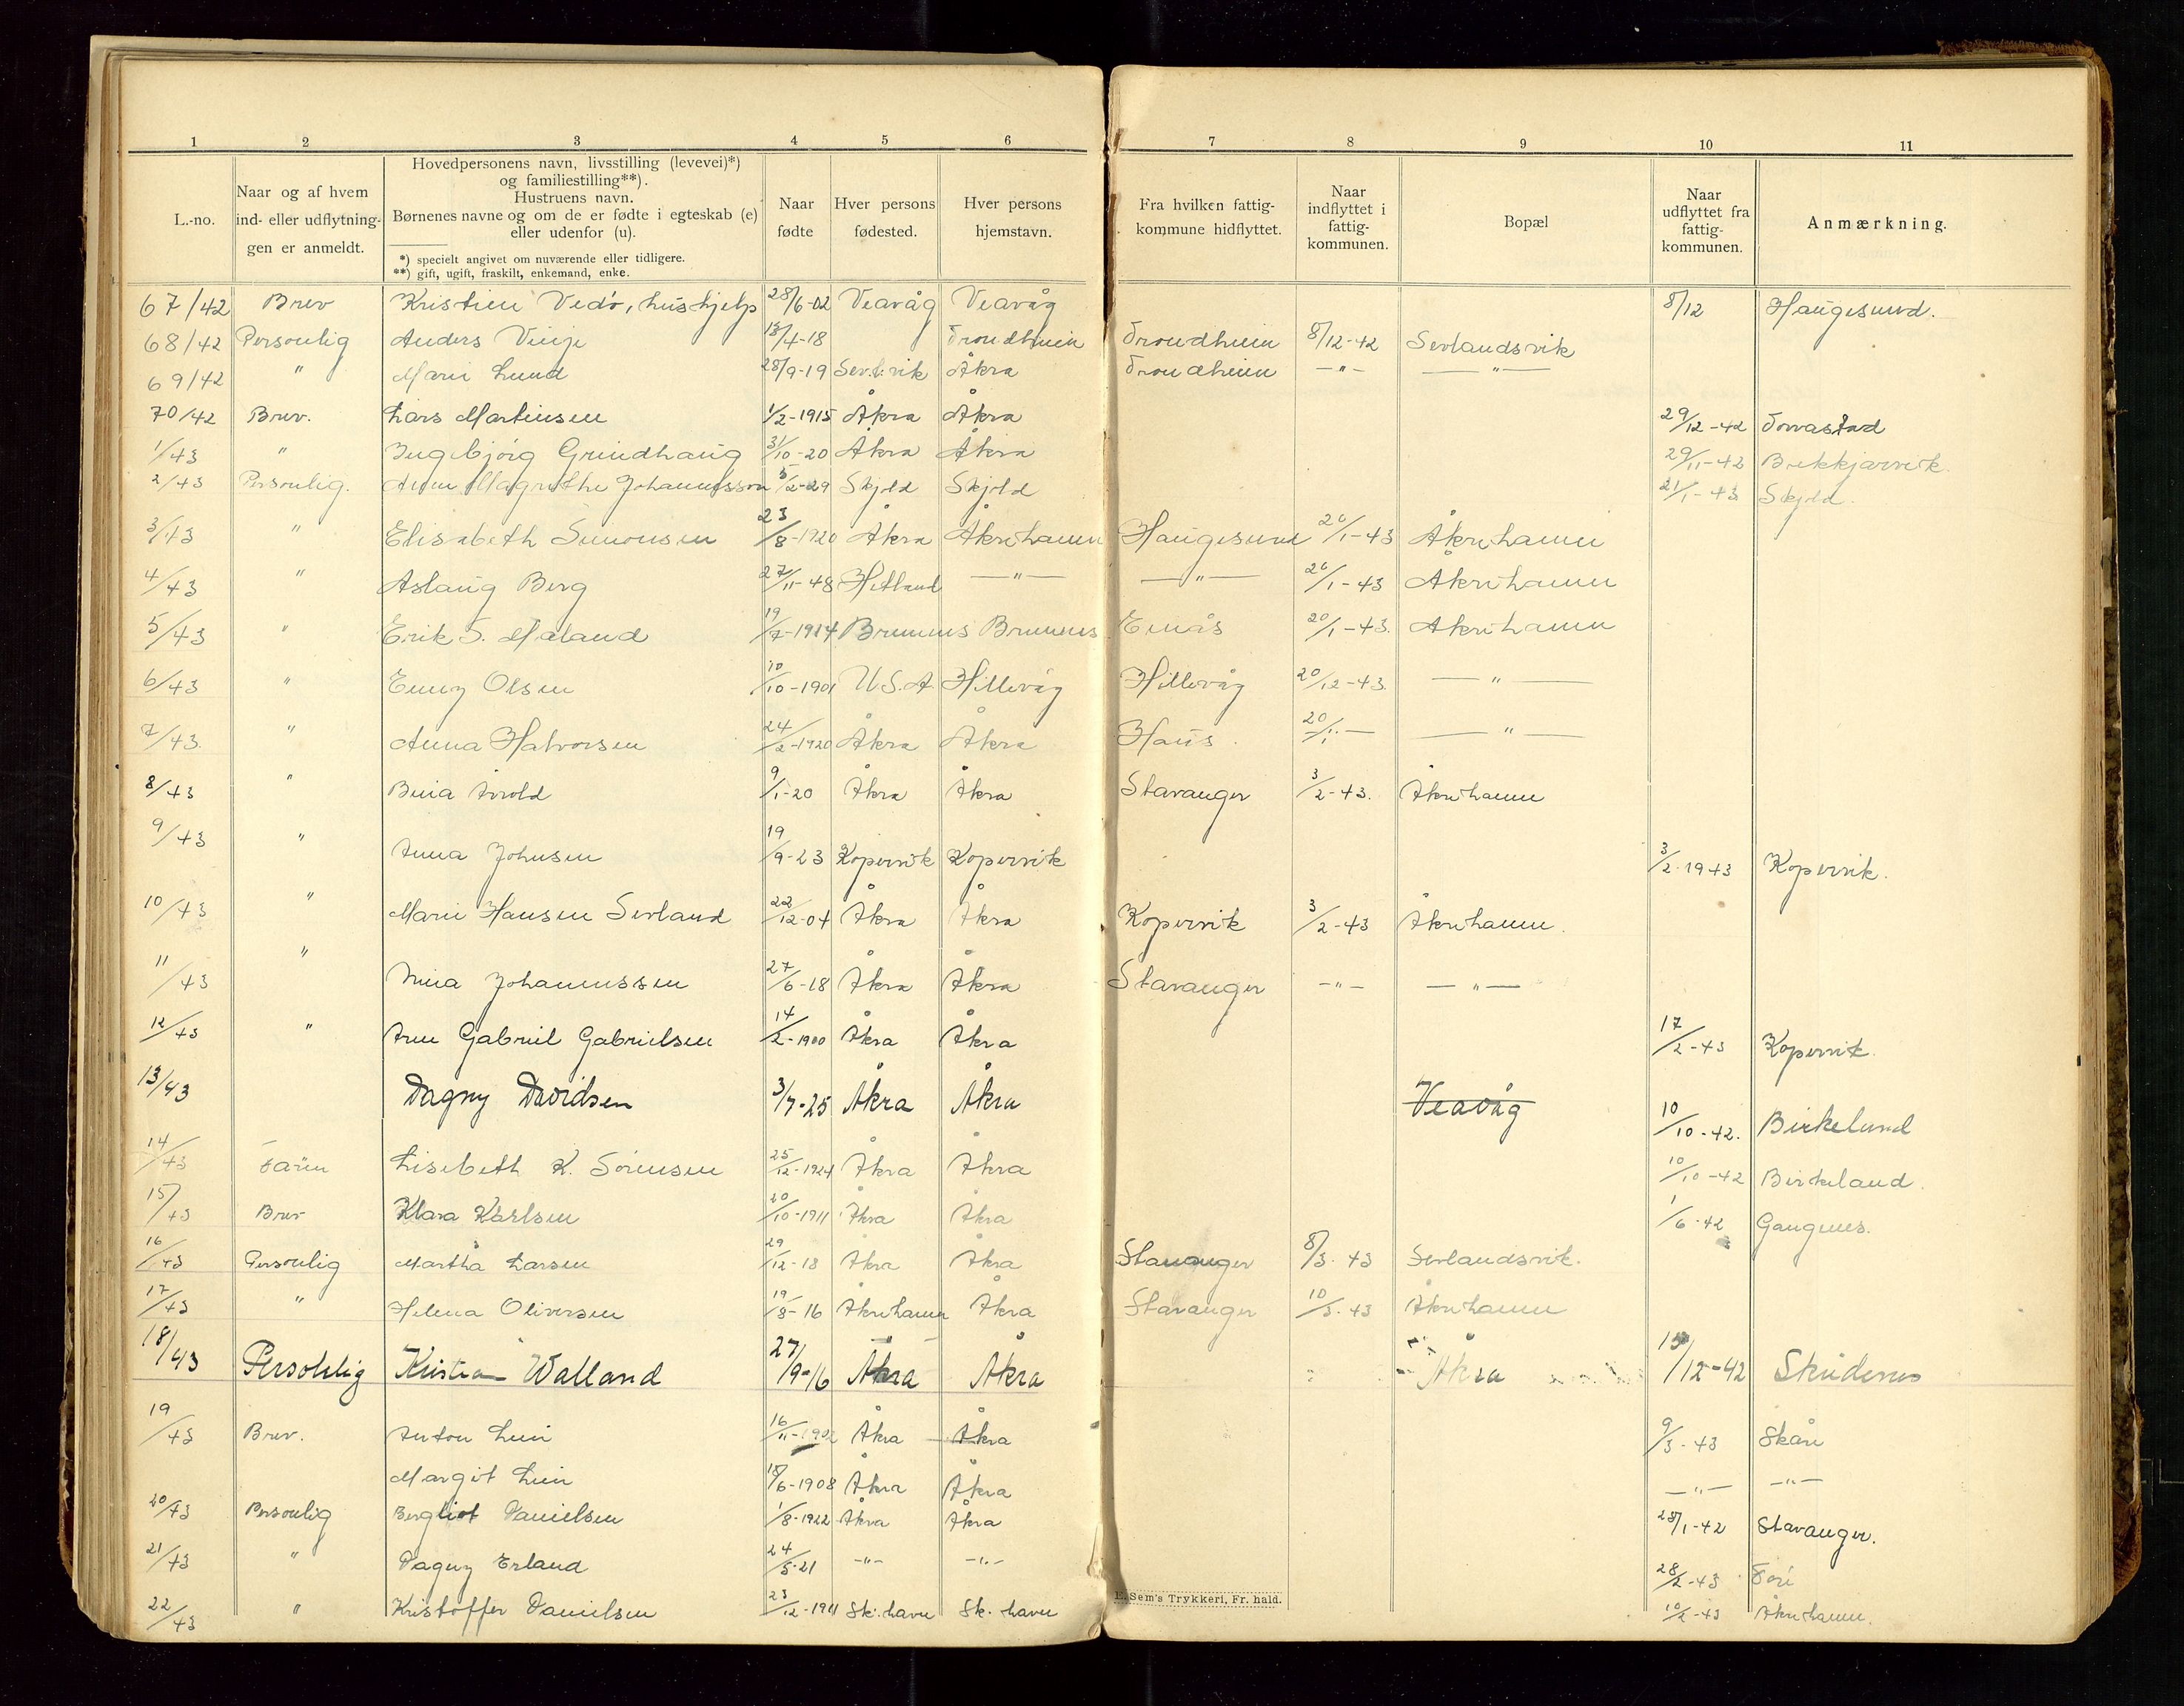 1 2 3 4 5 6 7 8 9 10 11
L.-no.
Naar og af hvem
ind- eller udflytnin-
gen er anmeldt.
Hovedpersonens navn, livsstilling (levevei)*)
og familiestilling**).
Hustruens navn.
Børnenes navne og om de er fødte i egteskab (e)
eller udenfor (u).
*) specielt angivet om nuværende eller tidligere.
**) gift, ugift, fraskilt, enkemand, enke.
Naar
fødte
Hver persons
fødested.
Hver persons
hjemstavn.
Fra hvilken fattig-
kommune hidflyttet.
Naar
indflyttet i
fattig-
kommunen.
Bopæl
Naar
udflyttet fra
fattig-
kommunen.
Anmærkning.
67/42 Brev Kristine Vedö, hushjelp 28/6-02 Veavåg Veavåg 8/12 Haugesund.
68/42 Personlig Anders Vinje 13/4-18 Trondheim Trondheim 8/12-42 Sevlandsvik
69/42 " Marie Lund 28/9-19 Sev.l.vik Åkra Trondheim -"- -"-
70/42 Brev. Lars Martinsen 1/2-1915 Åkra Åkra 29/12-42 Torvastad
1/43 " Ingebjörg Grindhaug 3/10-20 Åkra Åkra 29/11-42 Brekkjarvik.
2/43 Personlig. Anne Magrethe Johannesson 5/2-29 Skjold Skjold 21/1-43 Skjold.
3/43 " Elisabeth Simonsen 23/8-1920 Åkra Åkrehamn Haugesund 26/1-43 Åkrehamn
4/43 " Aslaug Berg 27/11-48 Hetland -"- -"- 26/1-43 Åkrehamn
5/43 " Erik S. Mæland 19/7-1914 Bremnes Bremnes Enås 20/1-43. Åkrehamn
6/43 " Emy Olsen 10/10-1901 U.S.A. Hillevåg Hillevåg 20/12-43. -"-
7/43. " Anna Halvorsen 24/2-1920 Åkra Åkra Haus. 20/1.- -"-
8/43 " Bina Årvold 9/1-20 Åkra Åkra Stavanger 3/2-43. Åkrehamn
9/43 " Anna Johnsen 19/9-23 Kopervik Kopervik 3/2-1943 Kopervik.
10/43 " Marie Hansen Sevland 22/12-04 Åkra Åkra Kopervik 3/2-43 Åkrehamn.
11/43 " Nina Johannessen 27/6-18 Åkra Åkra Stavanger -"- -"-
12/43 " Arne Gabriel Gabrielsen 14/2-1900 Åkra Åkra 17/2-43 Kopervik.
13/43 Dagny Davidsen 3/7-25 Åkra Åkra Veavåg 10/10-42. Birkelund
14/43 Faren Lisebeth K. Sörensen 25/12-1924 Åkra Åkra 10/10-42 Birkeland.
15/43 Brev Klara Karlsen 20/10-1911 Åkra Åkra 1/6-42 Gaugnes.
16/43 Personlig Martha Larsen 29/12-18 Åkra Åkra Stavanger 8/3-43 Sevlandsvik.
17/43 " Helena Oliversen 19/8-16 Åkrehamn Åkra Stavanger 10/3-43 Åkrehamn
18/43 Personlig Kristian Walland 27/9-16 Åkra Åkra Åkra /12-42 Skudenes
19/43 Brev. Anton Lein 16/11-1902 Åkra Åkra 9/3-43 Skåre
Margit Lein 18/6-1908 Åkra Åkra -"- -"-
20/43 Personlig Bergliot Danielsen 1/8-1922 Åkra Åkra 28/1-42 Stavanger.
21/43 " Dagny Erland 24/5-21 -"- -"- 28/2-43
22/43 " Kristoffer Danielsen 23/12-1911 Sk. havn Sk. havn 10/2-43 Åkrehamn.
E. Sem's Trykkeri, Fr. hald.